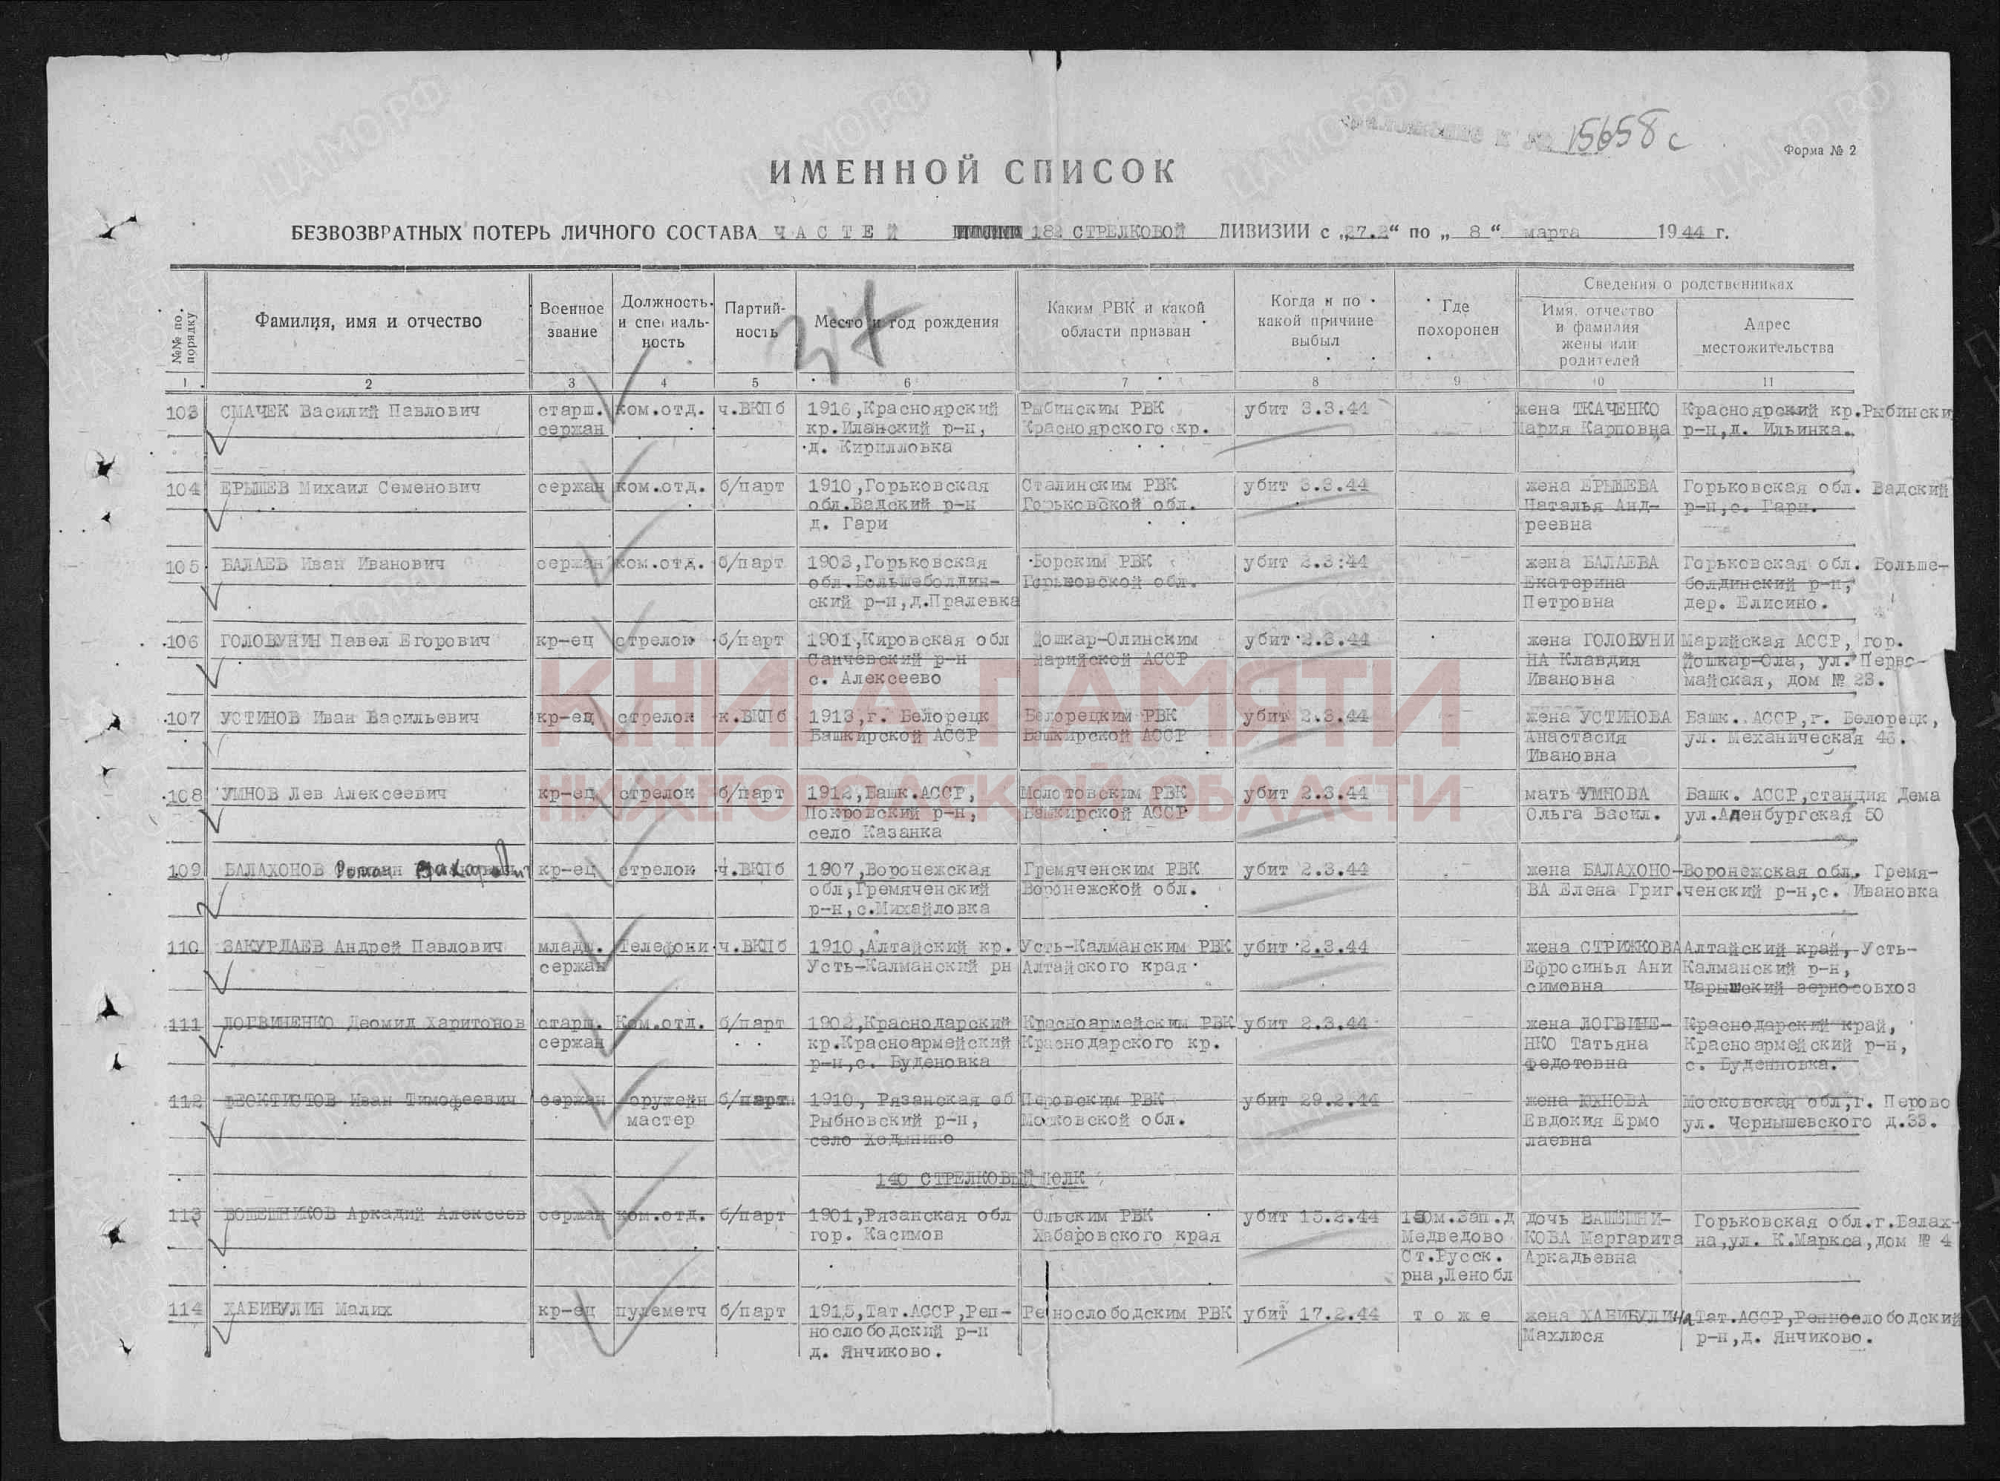 15658 с
Форма № 2
ИМЕННОЙ СПИСОК
БЕЗВОЗВРАТНЫХ ПОТЕРЬ ЛИЧНОГО СОСТАВА ЧАСТЕЙ 182 СТРЕЛКОВОЙ ДИВИЗИИ с „27.2“ по „8“ марта 1944 г.
№№ по порядку
Фамилия, имя и отчество
Военное звание
Должность и специальность
Партийность
Место и год рождения
Каким РВК и какой области призван
Когда и по какой причине выбыл
Где похоронен
Сведения о родственниках
Имя, отчество и фамилия жены или родителей
Адрес местожительства
1 2 3 4 5 6 7 8 9 10 11
34
103 СМАЧЕК Василий Павлович старш. ком.отд. ч.ВКПб 1916,Красноярский Рыбинским РВК убит 3.3.44 жена ТКАЧЕНКО Красноярский кр.Рыбински
сержан кр.Иланский р-н, Красноярского кр. Мария Карповна р-н,д. Ильинка.
д. Кирилловка
104 ЕРЫШЕВ Михаил Семенович сержан ком.отд. б/парт 1910,Горьковская Сталинским РВК убит 3.3.44 жена ЕРЫШЕВА Горьковская обл. Вадский
обл.Вадский р-н Горьковской обл. Наталья Анд- р-н,с. Гари.
д. Гари реевна
105 БАЛАЕВ Иван Иванович сержан ком.отд. б/парт 1903,Горьковская Борским РВК убит 2.3.44 жена БАЛАЕВА Горьковская обл. Больше-
обл.Большеболдин- Горьковской обл. Екатерина болдинский р-н,
ский р-н,д.Пралевка Петровна дер. Елисино.
106 ГОЛОВУНИН Павел Егорович кр-ец стрелок б/парт 1901,Кировская обл Йошкар-Олинским убит 2.3.44 жена ГОЛОВУНИ Марийская АССР, гор.
Санчевский р-н Марийской АССР НА Клавдия Йошкар-Ола, ул. Перво-
с. Алексеево Ивановна майская, дом № 23.
107 УСТИНОВ Иван Васильевич кр-ец стрелок к.ВКПб 1913,г. Белорецк Белорецким РВК убит 2.3.44 жена УСТИНОВА Башк. АССР,г. Белорецк,
Башкирской АССР Башкирской АССР Анастасия ул. Механическая 46.
Ивановна
108 УМНОВ Лев Алексеевич кр-ец стрелок б/парт 1912,Башк.АССР, Молотовским РВК убит 2.3.44 мать УМНОВА Башк. АССР,станция Дема
Покровский р-н, Башкирской АССР Ольга Васил. ул.Аденбургская 50
село Казанка
109 БАЛАХОНОВ Роман кр-ец стрелок ч.ВКПб 1907,Воронежская Гремяченским РВК убит 2.3.44 жена БАЛАХОНО- Воронежская обл. Гремя-
обл,Гремяченский Воронежской обл. ВА Елена Григ. ченский р-н,с. Ивановка
р-н,с.Михайловка
110 ЗАКУРДАЕВ Андрей Павлович младш. Телефони ч.ВКПб 1910,Алтайский кр. Усть-Калманским РВК убит 2.3.44 жена СТРИЖКОВА Алтайский край, Усть-
сержан Усть-Калманский рн Алтайского края Ефросинья Ани Калманский р-н,
симовна Чарышский зерносовхоз
111 ЛОГВИНЕНКО Деомид Харитонов старш. Ком.отд. б/парт 1902,Краснодарский Красноармейским РВК убит 2.3.44 жена ЛОГВИНЕ- Краснодарский край,
сержан кр.Красноармейский Краснодарского кр. НКО Татьяна Красноармейский р-н,
р-н,с. Буденовка Федотовна с. Буденновка.
112 ФЕОКТИСТОВ Иван Тимофеевич сержан оружейн б/парт 1910, Рязанская об Перовским РВК убит 29.2.44 жена ЮХНОВА Московская обл,г. Перово
мастер Рыбновский р-н, Московской обл. Евдокия Ермо ул. Чернышевского д.33.
село Ходынино лаевна
140 СТРЕЛКОВЫЙ ПОЛК
113 ВОШЕШНИКОВ Аркадий Алексеев сержан ком.отд. б/парт 1901,Рязанская обл Ольским РВК убит 15.2.44 150м.Зап.д дочь ВАШЕШНИ- Горьковская обл.г.Балах-
гор. Касимов Хабаровского края Медведово КОВА Маргарита на,ул. К.Маркса,дом № 4
Ст.Русск. Аркадьевна
рна,Ленобл
114 ХАБИБУЛИН Малих кр-ец пулеметч б/парт 1915,Тат.АССР,Реп- Репнослободским РВК убит 17.2.44 т о ж е жена ХАБИБУЛИНА Тат.АССР,Репнослободский
нослободский р-н Махлюся р-н,д. Янчиково.
д. Янчиково.
КНИГА ПАМЯТИ
НИЖЕГОРОДСКОЙ ОБЛАСТИ